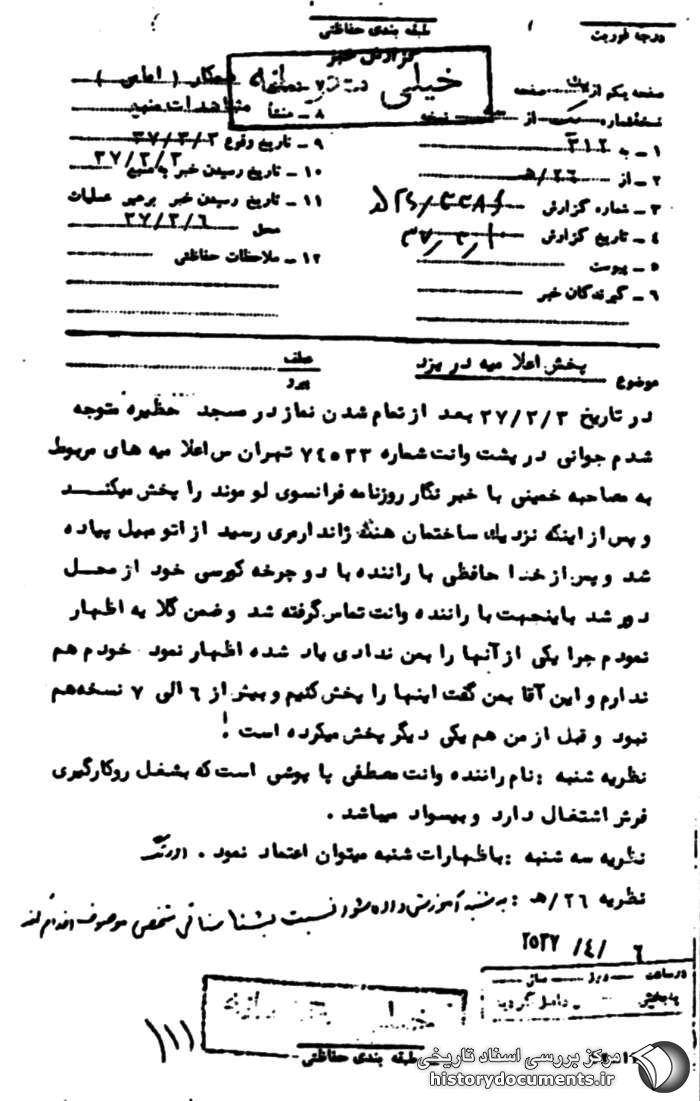 درجه فوریت
طبقه بندی حفاظتی
گزارش خبر
خیلی
صفحه یکم از یک صفحه
نسخه شماره یک از نسخه
۱ ـ به ۳۱۲
۲ ـ از ۲۶/ه
۳ ـ شماره گزارش
۴ ـ تاریخ گزارش
۵ ـ پیوست
۶ ـ گیرندگان خبر
۷ همکار (اماس)
۸ ـ منشأ مشاهدات منبع
۹ ـ تاریخ وقوع ۳۷/۳/۳
۱۰ ـ تاریخ رسیدن خبر به منبع ۳۷/۳/۳
۱۱ ـ تاریخ رسیدن خبر برهبر عملیات
محل ۳۷/۳/۶
۱۲ ـ ملاحظات حفاظتی
موضوع پخش اعلامیه در یزد
عطف
پیرو
در تاریخ ۳۷/۳/۳ بعد از تمام شدن نماز در مسجد حظیره متوجه
شدم جوانی در پشت وانت شماره ۷۴۵۳۳ تهران س اعلامیه های مربوط
به مصاحبه خمینی با خبر نگار روزنامه فرانسوی لوموند را پخش میکنـــد
و پس از اینکه نزدیك ساختمان هنگ ژاندارمری رسید از اتومبیل پیاده
شد و پس از خدا حافظی با راننده با دو چرخه کورسی خود از محـــل
دور شد باینجهت با راننده وانت تماس گرفته شد و ضمن گلایه اظهار
نمودم چرا یکی از آنها را بمن ندادی یاد شده اظهار نمود خودم هم
ندارم و این آقا بمن گفت اینها را پخش کنیم و بیش از ۶ الی ۷ نسخه هم
نبود و قبل از من هم یکی دیگر پخش میکرده است !
نظریه شنبه : نام راننده وانت مصطفی پاپوشی است که بشغل روکارگیری
فرش اشتغال دارد و بیسواد میباشد .
نظریه سه شنبه : باظهارات شنبه میتوان اعتماد نمود . اورنگ
نظریه ۲۶/ه : به شنبه آموزش داده شود نسبت بشناسائی شخص موصوف اقدام کند
۲۵۳۷/۴/۶
در ساعت
طبقه بندی حفاظتی
۱۱۱
مرکز بررسی اسناد تاریخی
historydocuments.ir